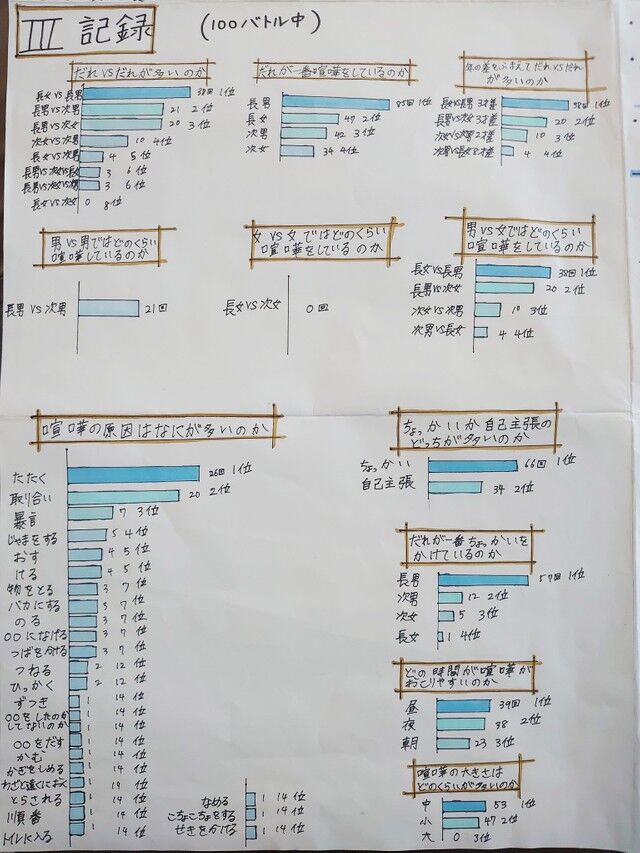 III 記録 (100バトル中)
だれVSだれが多いのか
長女VS長男 38回 1位
長男VS次男 21 2位
長男VS次女 20 3位
次女VS次男 10 4位
長女VS次男 4 5位
3 6位
3 6位
長女VS次女 0 8位
だれが一番喧嘩をしているのか
長男 85回 1位
長女 47 2位
次男 42 3位
次女 34 4位
年の差をふまえてだれVSだれ
が多いのか
長女VS長男 3才差 58回 1位
長男VS次女 3才差 20 2位
次女VS次男 2才差 10 3位
次男VS長女 8才差 4 4位
男VS男ではどのくらい
喧嘩をしているのか
長男VS次男 21回
女VS女ではどのくらい
喧嘩をしているのか
長女VS次女 0回
男VS女ではどのくらい
喧嘩をしているのか
長女VS長男 38回 1位
長男VS次女 20 2位
次女VS次男 10 3位
次男VS長女 4 4位
喧嘩の原因はなにが多いのか
たたく 26回 1位
取り合い 20 2位
暴言 7 3位
じゃまをする 5 4位
おす 4 5位
ける 4 5位
物をとる 3 7位
バカにする 3 7位
のる 3 7位
○○になげる 3 7位
つばを付ける 3 7位
つねる 2 12位
ひっかく 2 12位
ずつき 1 14位
○○をしたのか
してないのか 1 14位
○○をだす 1 14位
かむ 1 14位
かぎをしめる 1 14位
わざと遠くにおく 1 14位
とらされる 1 14位
順番 1 14位
トイレに入る 1 14位
なめる 1 14位
こちょこちょをする 1 14位
せきを付ける 1 14位
ちょっかいか自己主張の
どっちが多いのか
ちょっかい 66回 1位
自己主張 34 2位
だれが一番ちょっかいを
かけているのか
長男 57回 1位
次男 12 2位
次女 5 3位
長女 1 4位
どの時間が喧嘩が
おこりやすいのか
昼 39回 1位
夜 38 2位
朝 23 3位
喧嘩の大きさは
どのくらいが多いのか
中 53 1位
小 47 2位
大 0 3位